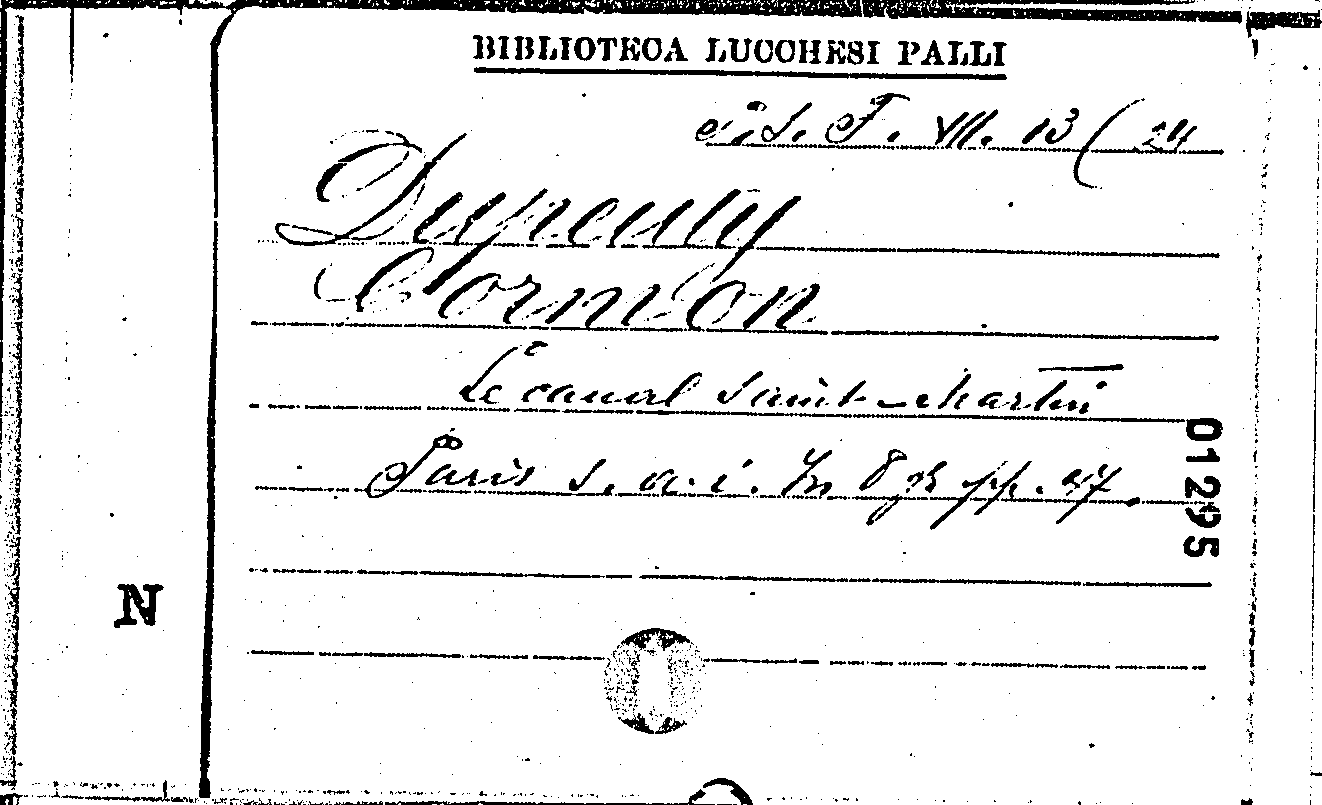 BIBLIOTECA LUCCHESI PALLI
F. VII. 13 ( 24
Dupeuty
Cormon
Le canal Saint-Martin
Paris s. a. i. In 8 gr pp. 47.
01295
N